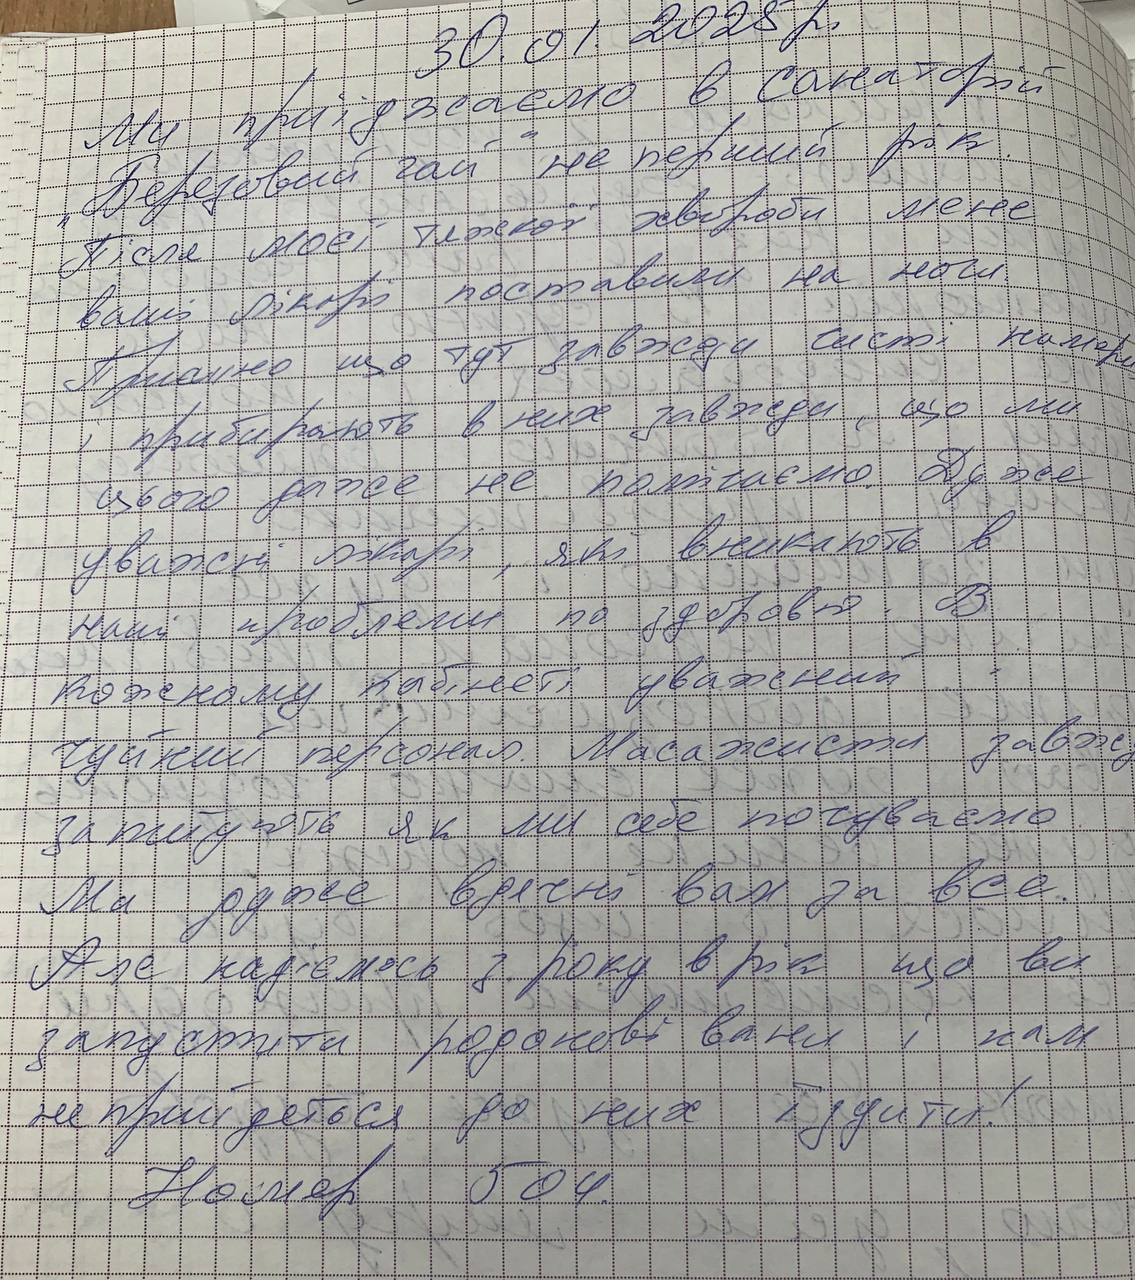 30.01.2025р.
Ми приїіджаємо в санаторій
„Березовий гай" не перший рік.
Після моєї тяжкої хвороби мене
ваші лікарі поставили на ноги.
Приємно що тут завжди чисті номери
і прибирають в них завжди, що ми
цього даже не помічаємо. Дуже
уважні лікарі, які вникають в
наші проблеми по здоровю. В
кожному кабінеті уважний і
чуйний персонал. Масажисти завжд
запитують як ми себе почуваємо.
Ми дуже вдячні вам за все.
Але надіємось з року в рік що ви
запустите родонові вани і нам
не прийдеться до них їздити!
Номер 504.